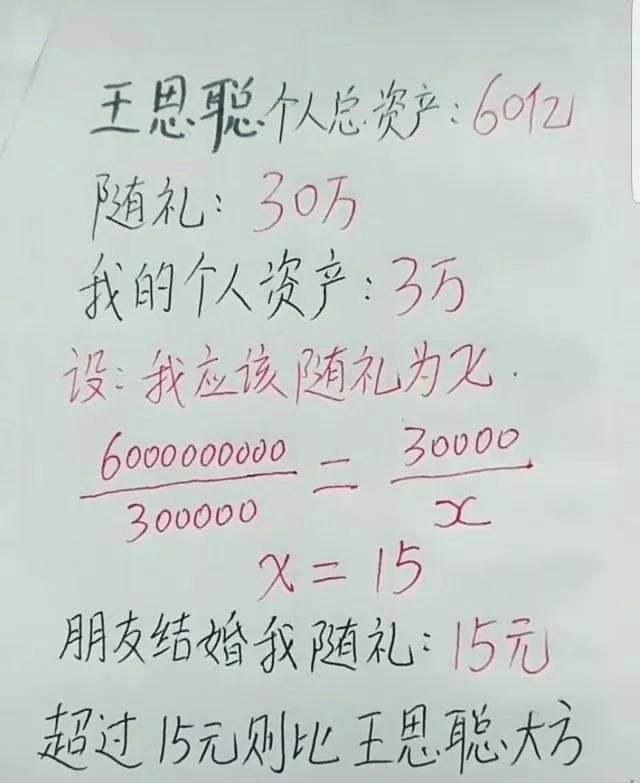 王思聪个人总资产：60亿
随礼：30万
我的个人资产：3万
设：我应该随礼为x.
6000000000/300000 = 30000/x
x=15
朋友结婚我随礼：15元
超过15元则比王思聪大方